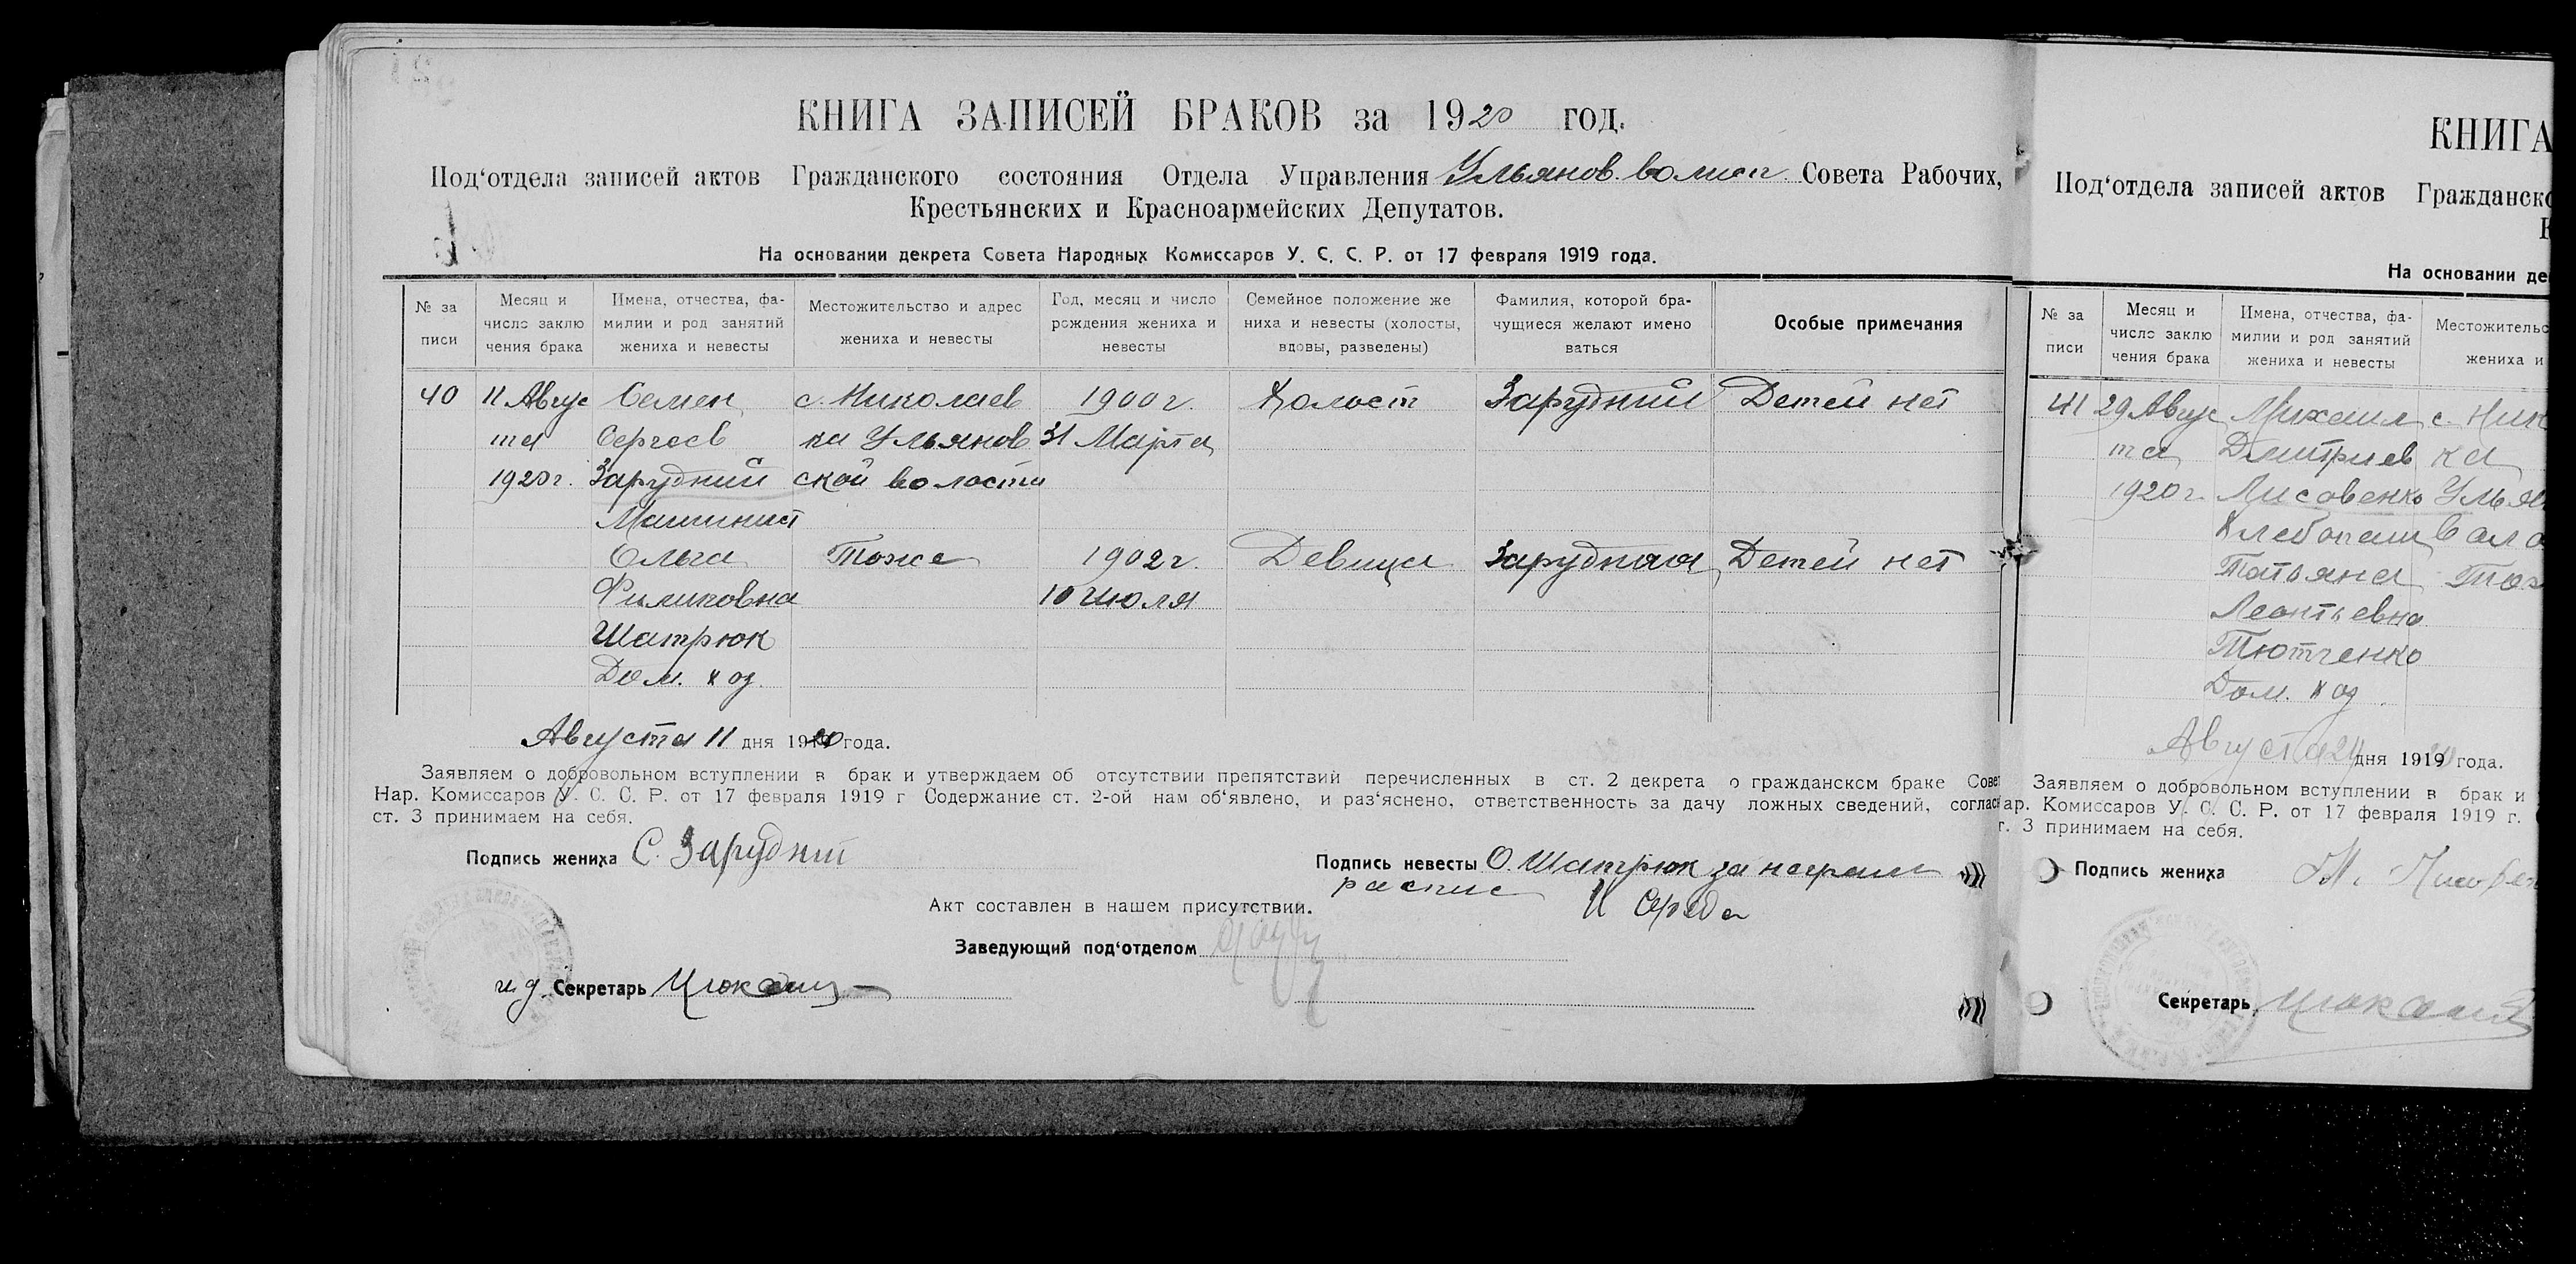 КНИГА ЗАПИСЕЙ БРАКОВ за 1920 год.
Под‘отдела записей актов Гражданского состояния Отдела Управления Ульянов. волисп. Совета Рабочих,
Крестьянских и Красноармейских Депутатов.
На основании декрета Совета Народных Комиссаров У. С. С. Р. от 17 февраля 1919 года.
№ за писи
Месяц и число заклю чения брака
Имена, отчества, фа- милии и род занятий жениха и невесты
Местожительство и адрес жениха и невесты
Год, месяц и число рождения жениха и невесты
Семейное положение же ниха и невесты (холосты, вдовы, разведены)
Фамилия, которой бра- чущиеся желают имено ваться
Особые примечания
40 11 Авгус Семен с. Николаев 1900 г. Холост Зарудний Детей нет
та Сергеев ка Ульянов 31 Марта
1920 г. Зарудний ской волости
Машинист
Ольга Тоже 1902 г. Девица Зарудная Детей нет
Филиповна 10 июля
Шатрюк
Дом. хоз.
Августа 11 дня 1920 года.
Заявляем о добровольном вступлении в брак и утверждаем об отсутствии препятствий перечисленных в ст. 2 декрета о гражданском браке Сове
Нар. Комиссаров У. С. С. Р. от 17 февраля 1919 г Содержание ст. 2-ой нам об‘явлено, и раз‘яснено, ответственность за дачу ложных сведений, соглас
ст. 3 принимаем на себя.
Подпись жениха С. Зарудний
Подпись невесты О. Шатрюк за неграм
распис И Середа
Акт составлен в нашем присутствии.
Заведующий под‘отделом
и д. Секретарь
КНИГА
Под‘отдела записей актов Гражданско
К
На основании де
№ за писи
Месяц и число заклю чения брака
Имена, отчества, фа- милии и род занятий жениха и невесты
Местожительс жениха и
41 29 Авгус Михаил с. Ник
та Дмитриев ка
1920 г. Лисовенко Ульян
Хлебопаш вол о
Татьяна Тож
Леонтьевна
Тютченко
Дом. хоз
Августа 29 дня 1919 года.
Заявляем о добровольном вступлении в брак и
ар. Комиссаров У. С. С. Р. от 17 февраля 1919 г.
т. 3 принимаем на себя.
Подпись жениха М. Лисовен
Секретарь